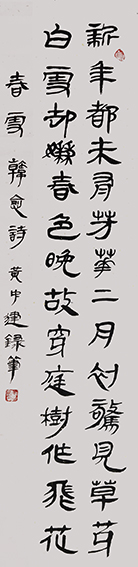 新年都未有芳華二月初驚見草芽
白雪却嫌春色晚故穿庭樹作飛花
春雪 韓愈詩 黄中建錄筆